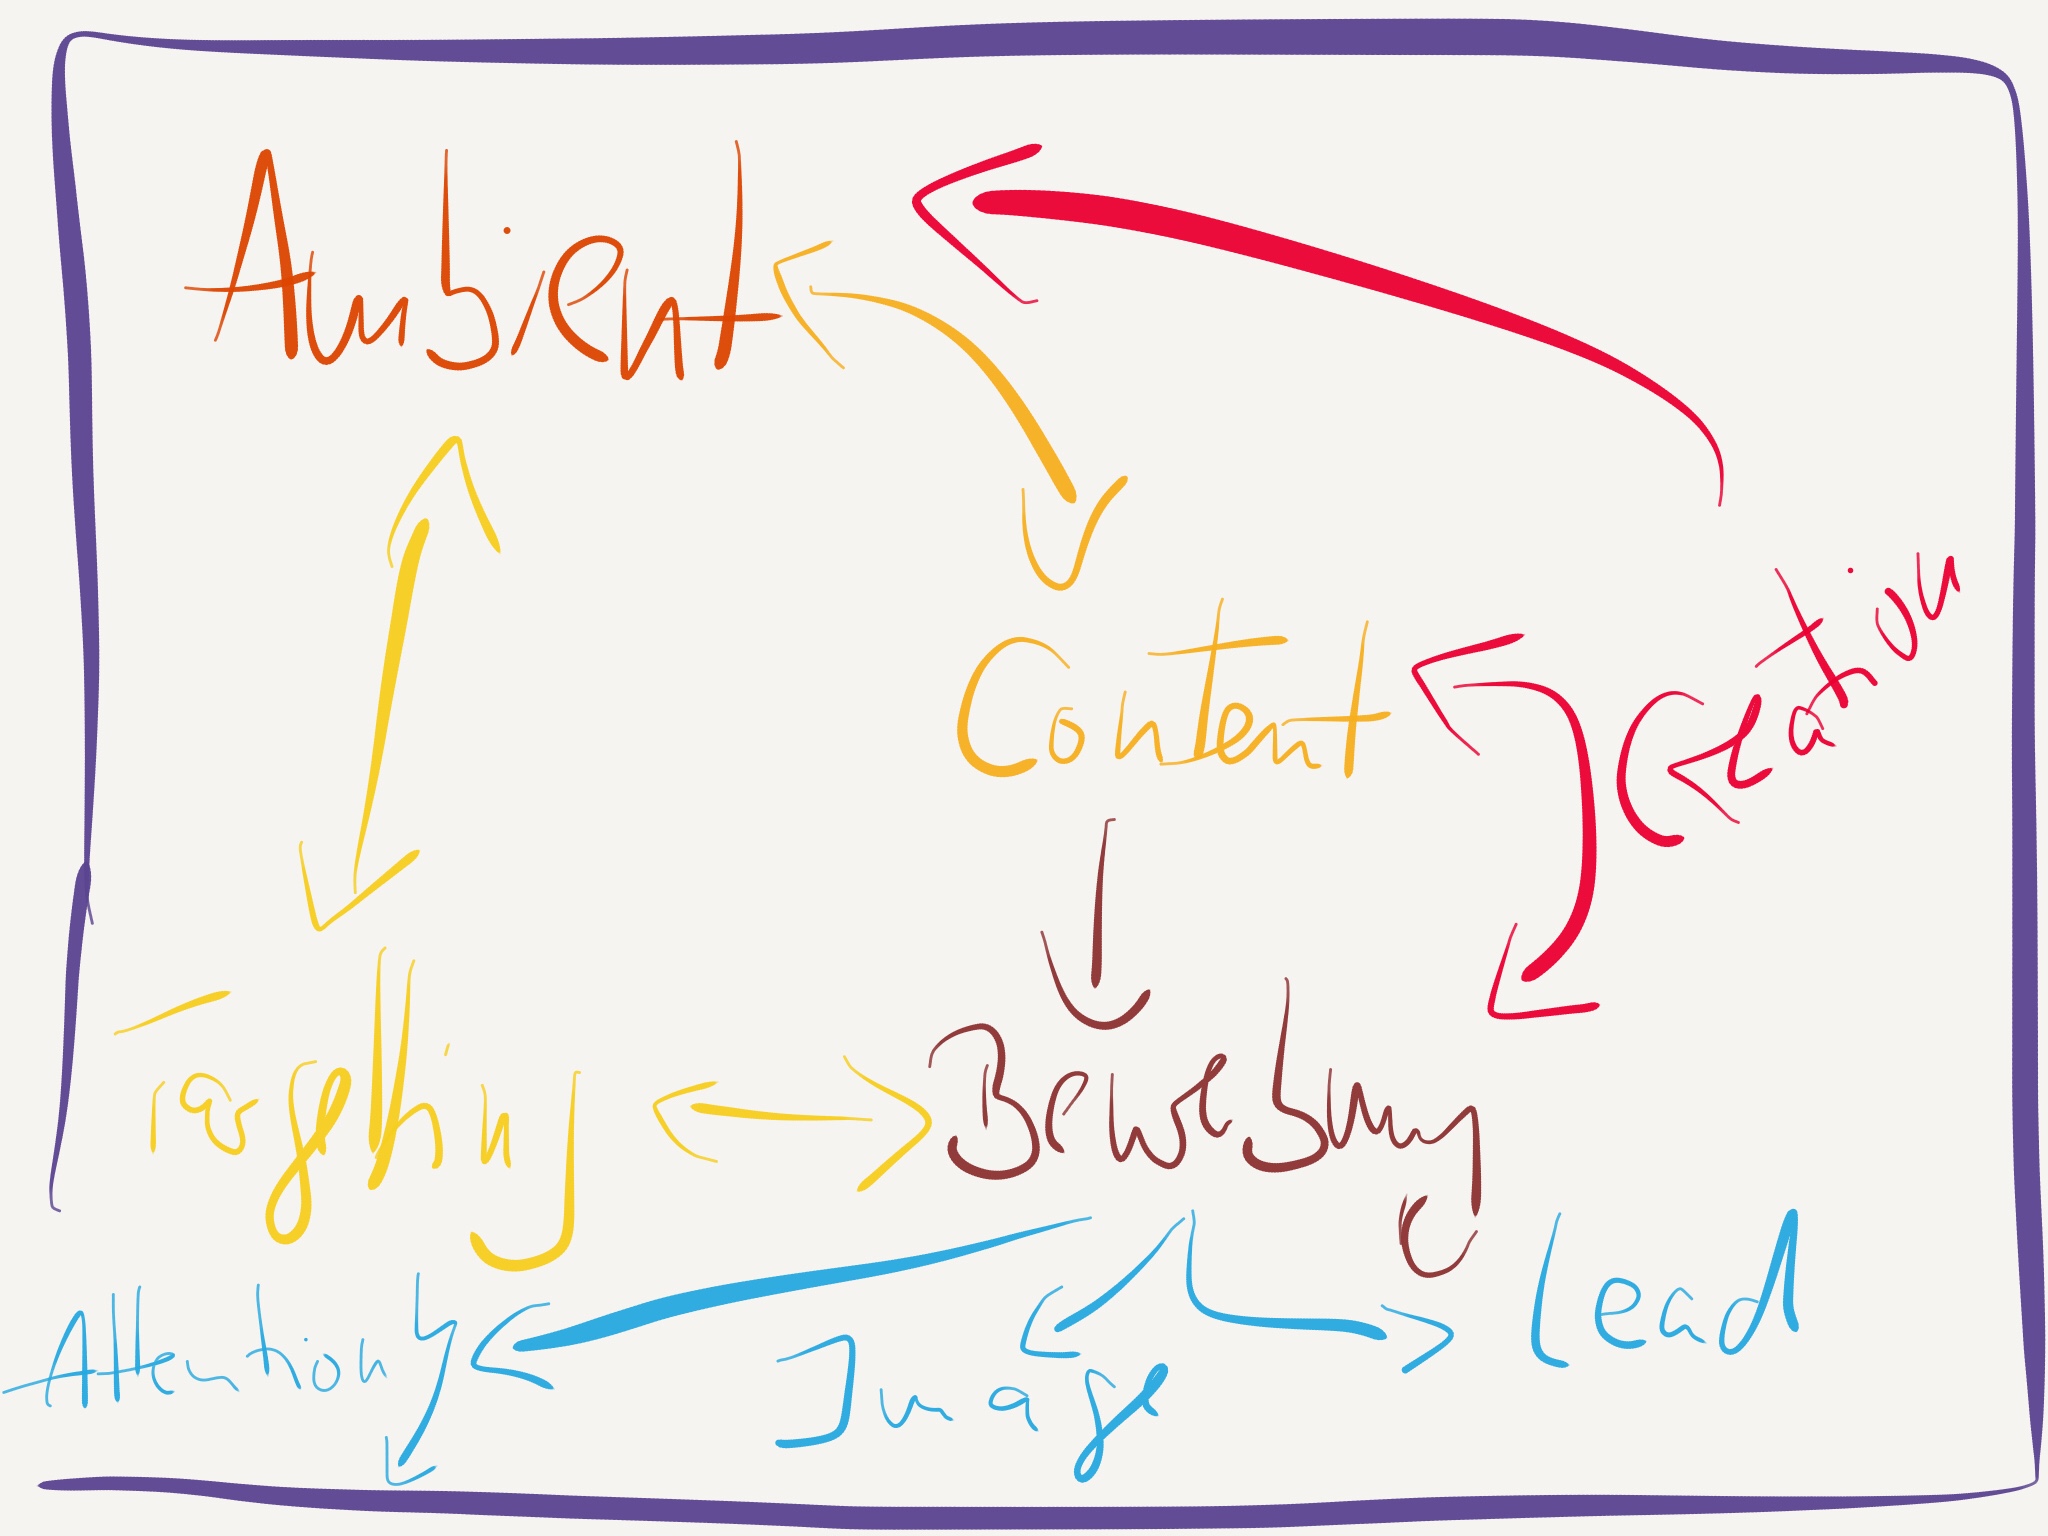 Ambient
Content
Creation
Targeting
Bewerbung
Attention
Image
Lead